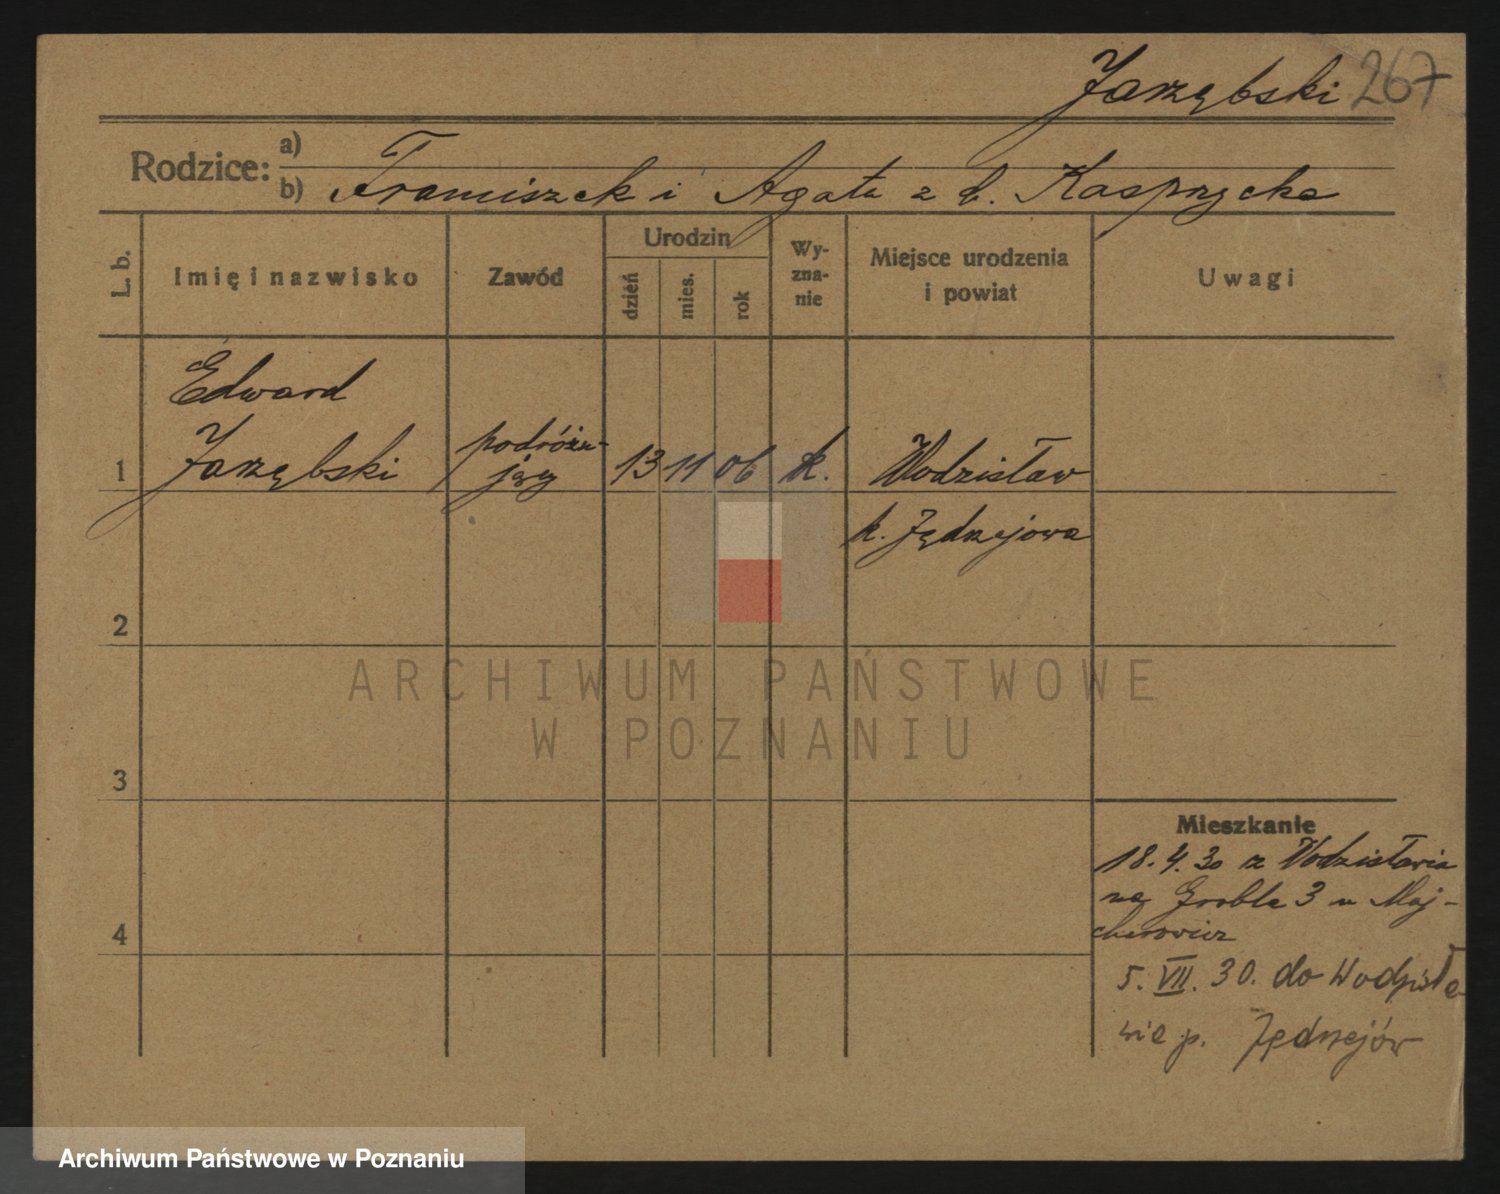 Jarzębski 267
Rodzice: a)
b) Franciszek i Agata z d. Kasprzycka
L. b.
Imię i nazwisko
Zawód
Urodzin
dzień
mies.
rok
Wy-
zna-
nie
Miejsce urodzenia
i powiat
Uwagi
Edward
1 Jarzębski
podróżu-
jący
13 11 06 k. Wodzisław
k. Jędrzejowa
2
ARCHIWUM PAŃSTWOWE
W POZNANIU
3
Mieszkanie
18.4.30 z Wodzisławia
na Groble 3 u Maj-
cherowicz
4
5. VII. 30. do Wodzisła-
wia p. Jędrzejów
Archiwum Państwowe w Poznaniu